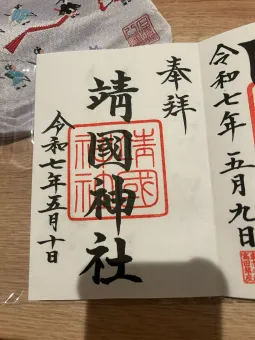 奉拝
靖國神社
令和七年五月十日
靖國神社
令和七年五月九日